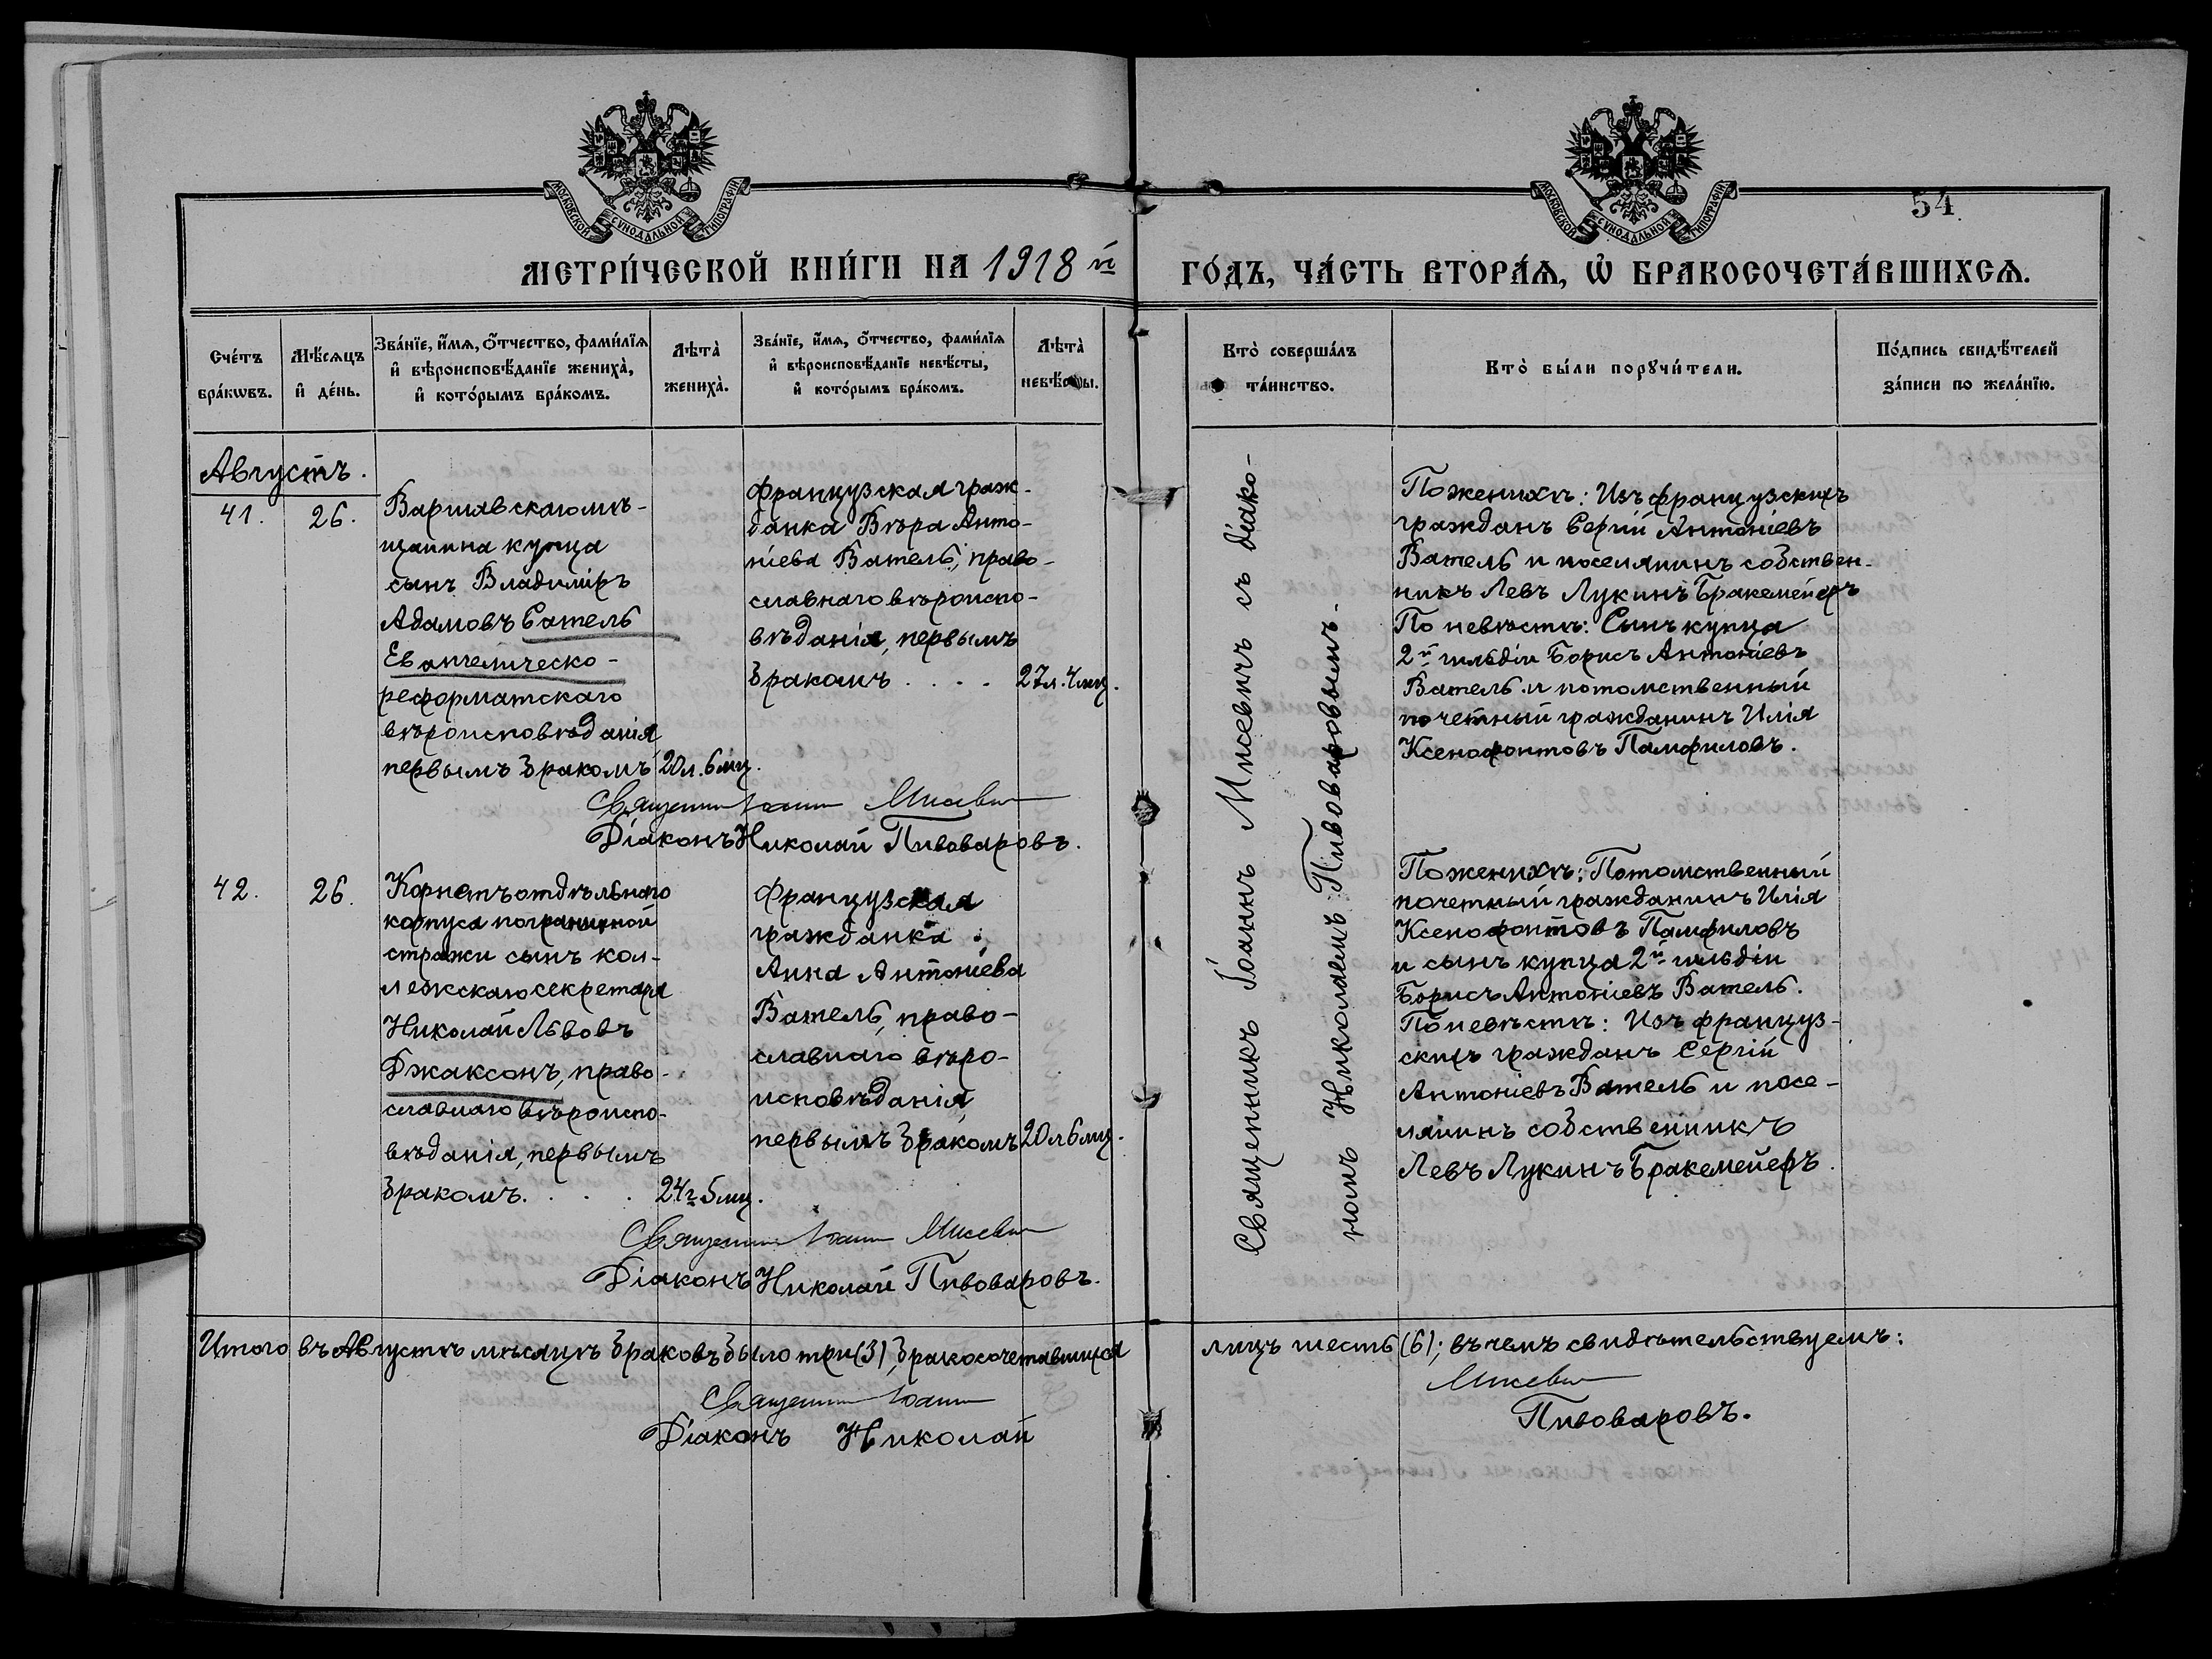 МОСКОВСКОЙ СѴНОДАЛЬНОЙ ТИПОГРАФІИ
МОСКОВСКОЙ СѴНОДАЛЬНОЙ ТИПОГРАФІИ
54
МЕТРИ́ЧЕСКОЙ КНИ́ГИ НА 1918 й
ГО́ДЪ, ЧА́СТЬ ВТОРА́Ѧ, Ѡ҆ БРАКОСОЧЕТА́ВШИХСѦ.
Сче́тъ
бра́кѡвъ.
Мѣ́сѧцъ
и҆ де́нь.
Зва́нїе, и҆́мѧ, ѻ҆́тчество, фами́лїѧ
и҆ вѣроисповѣ́данїе жениха̀,
и҆ кото́рымъ бра́комъ.
Лѣта̀
жениха̀.
Зва́нїе, и҆́мѧ, ѻ҆́тчество, фами́лїѧ
и҆ вѣроисповѣ́данїе невѣ́сты,
и҆ кото́рымъ бра́комъ.
Лѣта̀
невѣ́сты.
Кто̀ соверша́лъ
та́инство.
Кто̀ бы́ли порꙋчи́тели.
По́дпись свидѣ́телей
за́писи по жела́нїю.
Августъ.
41.
26.
Варшавскаго мѣ-
щанина купца
сынъ Владиміръ
Адамовъ Сатель
Евангелическо-
реформатскаго
вѣроисповѣданія
первымъ бракомъ
20 л. 6 мц.
Французская граж-
данка Вѣра Анто-
ніева Ватель, право-
славнаго вѣроиспо-
вѣданія, первымъ
бракомъ . . . .
27 л. 4 мц.
Священникъ Іоаннъ Мисевичъ
Діаконъ Николай Пивоваровъ.
Священникъ Іоаннъ Мисевичъ съ діако-
номъ Николаемъ Пивоваровымъ.
По женихѣ: Изъ французскихъ
гражданъ Сергій Антоніевъ
Ватель и поселянинъ собствен-
никъ Левъ Лукинъ Бракемейеръ
По невѣстѣ: Сынъ купца
2й гильдіи Борисъ Антоніевъ
Ватель и потомственный
почетный гражданинъ Илія
Ксенофонтовъ Памфиловъ.
42.
26.
Корнетъ отдѣльнаго
корпуса пограничной
стражи сынъ кол-
лежскаго секретаря
Николай Львовъ
Джаксонъ, право-
славнаго вѣроиспо-
вѣданія, первымъ
бракомъ. . . .
24 г. 5 мц.
Французская
гражданка
Анна Антоніева
Ватель, право-
славнаго вѣро-
исповѣданія,
первымъ бракомъ
20 л 6 мц.
По женихѣ: Потомственный
почетный гражданинъ Илія
Ксенофонтовъ Памфиловъ
и сынъ купца 2й гильдіи
Борисъ Антоніевъ Ватель.
По невѣстѣ: Изъ француз-
скихъ гражданъ Сергій
Антоніевъ Ватель и посе-
лянинъ собственникъ
Левъ Лукинъ Бракемейеръ.
Священникъ Іоаннъ Мисевичъ
Діаконъ Николай Пивоваровъ.
Итого въ Августѣ мѣсяцѣ браковъ было три (3), бракосочетавшихся лицъ шесть (6); въ чемъ свидѣтельствуемъ:
Священникъ Іоаннъ Мисевичъ
Діаконъ Николай Пивоваровъ.